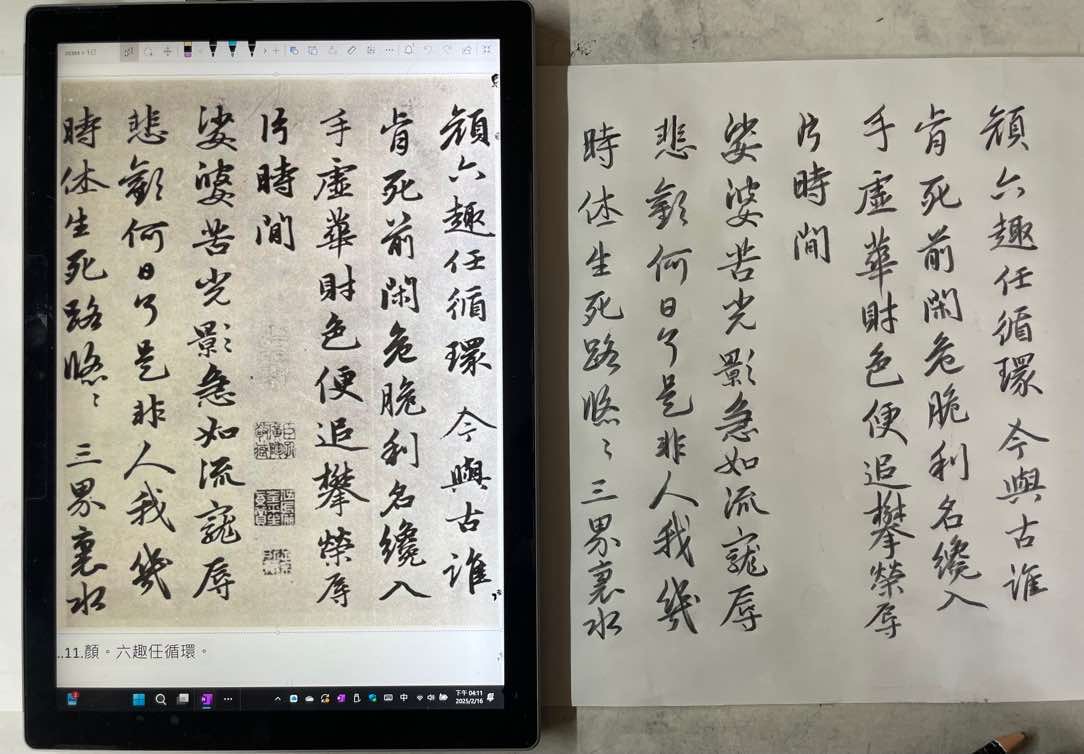 顏六趣任循環 今與古誰
肯死前閑危脆利名纔入
手虛華財色便追攀榮辱
片時間
娑婆苦光影急如流寵辱
悲歡何日了是非人我幾
時休生死路悠〻 三界裏水
..11.顏。六趣任循環。
中 下午 04:11
2025/2/16
顏六趣任循環 今與古誰
肯死前閑危脆利名纔入
手虛華財色便追攀榮辱
片時間
娑婆苦光影急如流寵辱
悲歡何日了是非人我幾
時休生死路悠〻 三界裏水